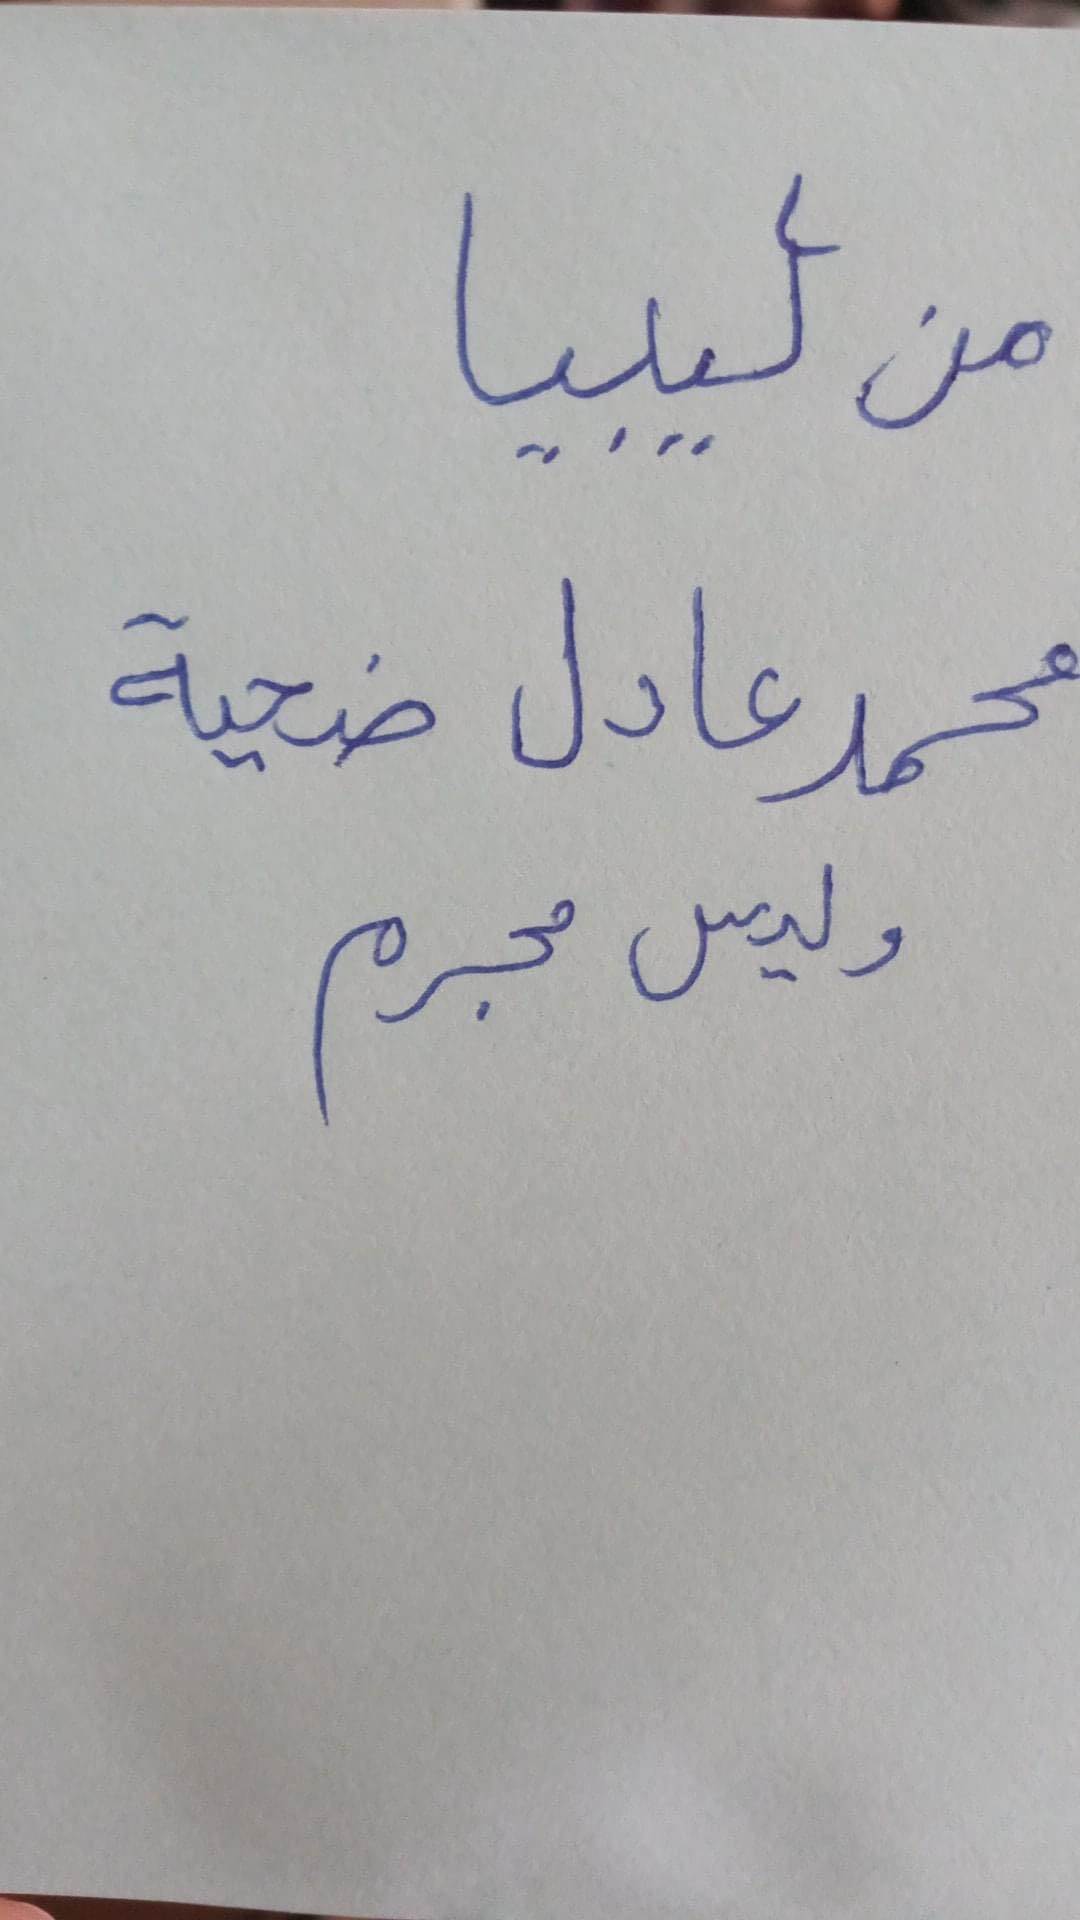 من ليبيا
محمد عادل ضحية
وليس مجرم